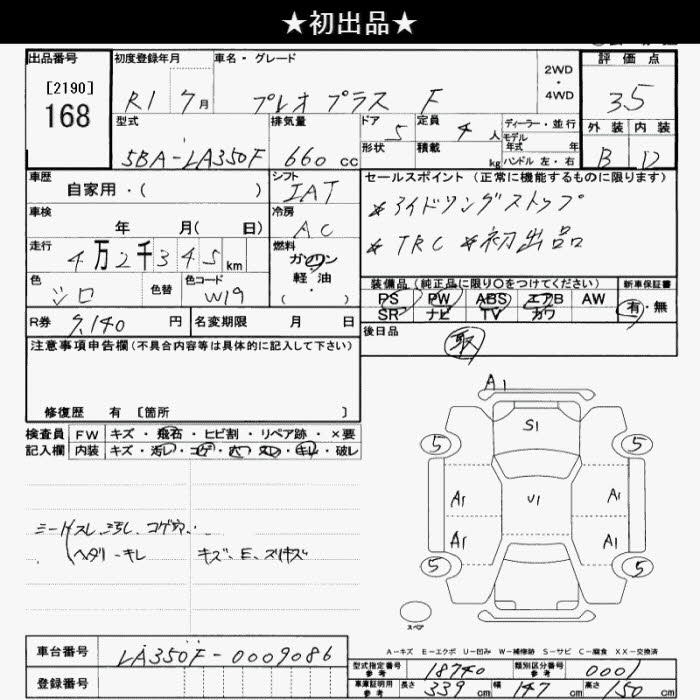 ★初出品★
出品番号
[2190]
168
初度登録年月
R1 7月
車名・グレード
プレオプラス F
2WD
・
4WD
評価点
3.5
外装 内装
B D
型式
5BA-LA350F
排気量
660 cc
ドア 5
形状
定員 4人
積載 kg
ディーラー・並行
モデル
年式 年
ハンドル 左・右
車歴
自家用・( )
シフト
IAT
セールスポイント(正常に機能するものに限ります)
*アイドリングストップ
*TRC *初出品
車検
年 月( 日)
冷房
AC
走行
4万2千345km
燃料
ガソリン
軽油
( ・ )
色
シロ
色替
色コード
W19
装備品(純正品に限り〇をつけてください)
PS PW ABS エアB AW
SR ナビ TV カワ
新車保証書
有・無
R券 7,140 円
名変期限 月 日
後日品
取
注意事項申告欄(不具合内容等は具体的に記入して下さい)
修復歴 有 [箇所 ]
検査員
記入欄
FW キズ・飛石・ヒビ割・リペア跡・×要
内装 キズ・汚レ・コゲ・穴・スレ・キレ・破レ
シートスレ、汚レ、コゲ穴、
ヘタリ-キレ キズ、E、スリキズ
A1
S1
5 5
A1 U1 A1
A1 A1
5 5
スペア
A-キズ E-エクボ U-凹み W-補修跡 S-サビ C-腐食 XX-交換済
車台番号
LA350F-0009086
登録番号
型式指定番号
参考
18740
類別区分番号
参考
0001
車庫証明用
参考
長さ 339 cm 幅 147 cm 高さ 150 cm